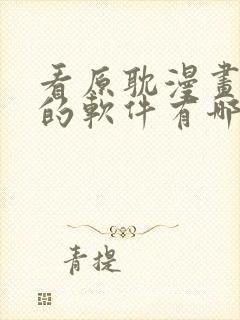 看原耽漫畫
的軟件有哪
青提